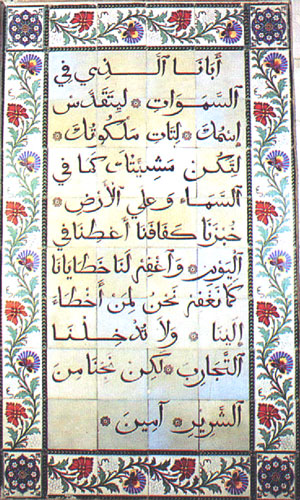 أبانا الذي في
السموات ليتقدس
إسمك * لتات ملكوتك *
لتكن مشيئتك كما في
السماء وعلي الأرض *
خبزنا كفافنا أعطنا في
اليوم * وأغفر لنا خطايانا
كما نغفر نحن لمن أخطاء
إلينا * ولا تدخلنا
التجارب * لكن نجنا من
الشرير * آمين *